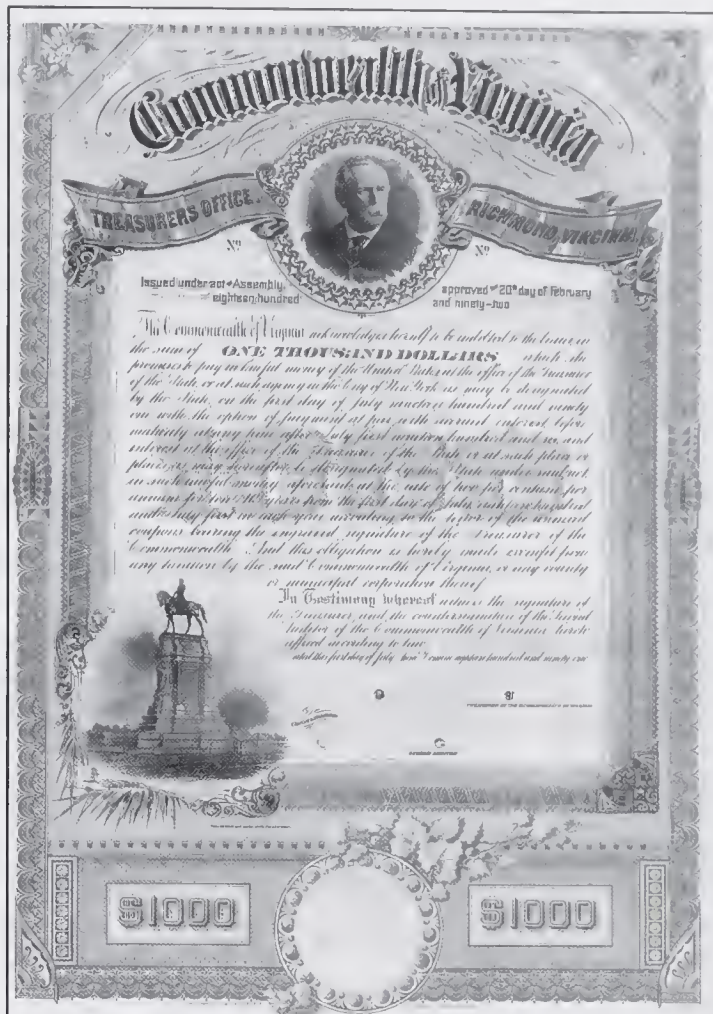 Commonwealth of Virginia
TREASURERS OFFICE.
RICHMOND, VIRGINIA.
Nº
Nº
Issued under act of Assembly
approved 20th day of February
eighteen hundred
and ninety-two
The Commonwealth of Virginia acknowledges herself to be indebted to the bearer in
the sum of ONE THOUSAND DOLLARS which she
promises to pay in lawful money of the United States, at the office of the Treasurer
of the State or at such agency in the City of New York as may be designated
by the State, on the first day of July nineteen hundred and ninety
one with the option of payment at par with accrued interest, before
maturity at any time after July first nineteen hundred and six and
interest at the office of the Treasurer of the State or at such place or
places as may hereafter be designated by the State under
in such lawful money aforesaid at the rate of two per centum per
annum for ten years from the first day of July
first in each year according to the tenor of the annexed
coupons bearing the engraved signature of the Treasurer of the
Commonwealth And this obligation is hereby made exempt from
any taxation by the said Commonwealth of Virginia, or any county
or municipal corporation thereof
In Testimony whereof witness the signature of
the Treasurer, and the countersignature of the Second
Auditor of the Commonwealth of Virginia hereto
affixed according to law
this first day of July eighteen hundred and ninety one
TREASURER OF THE COMMONWEALTH OF VIRGINIA
SECOND AUDITOR
$1000
$1000